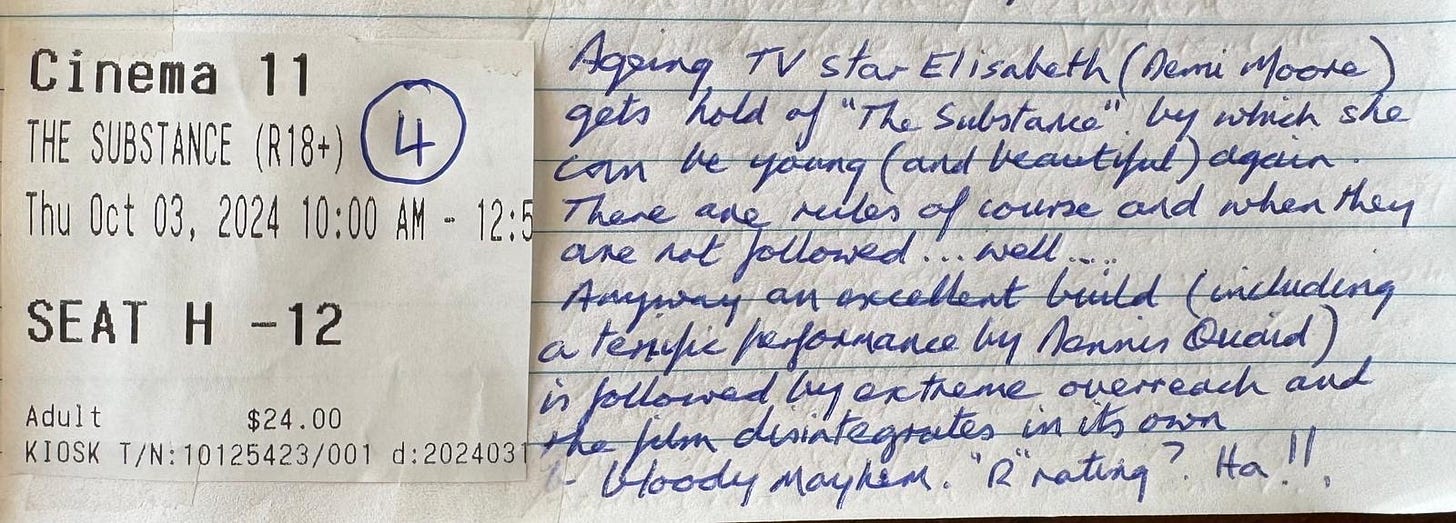 Cinema 11
THE SUBSTANCE (R18+)
4
Thu Oct 03, 2024 10:00 AM - 12:5
SEAT H -12
Adult $24.00
KIOSK T/N:10125423/001 d:2024031
Ageing TV star Elisabeth (Demi Moore)
gets hold of "The Substance" by which she
can be young (and beautiful) again.
There are rules of course and when they
are not followed... well....
Anyway an excellent build (including
a terrific performance by Dennis Quaid)
is followed by extreme overreach and
the film disintegrates in its own
bloody mayhem. "R" rating? Ha!!